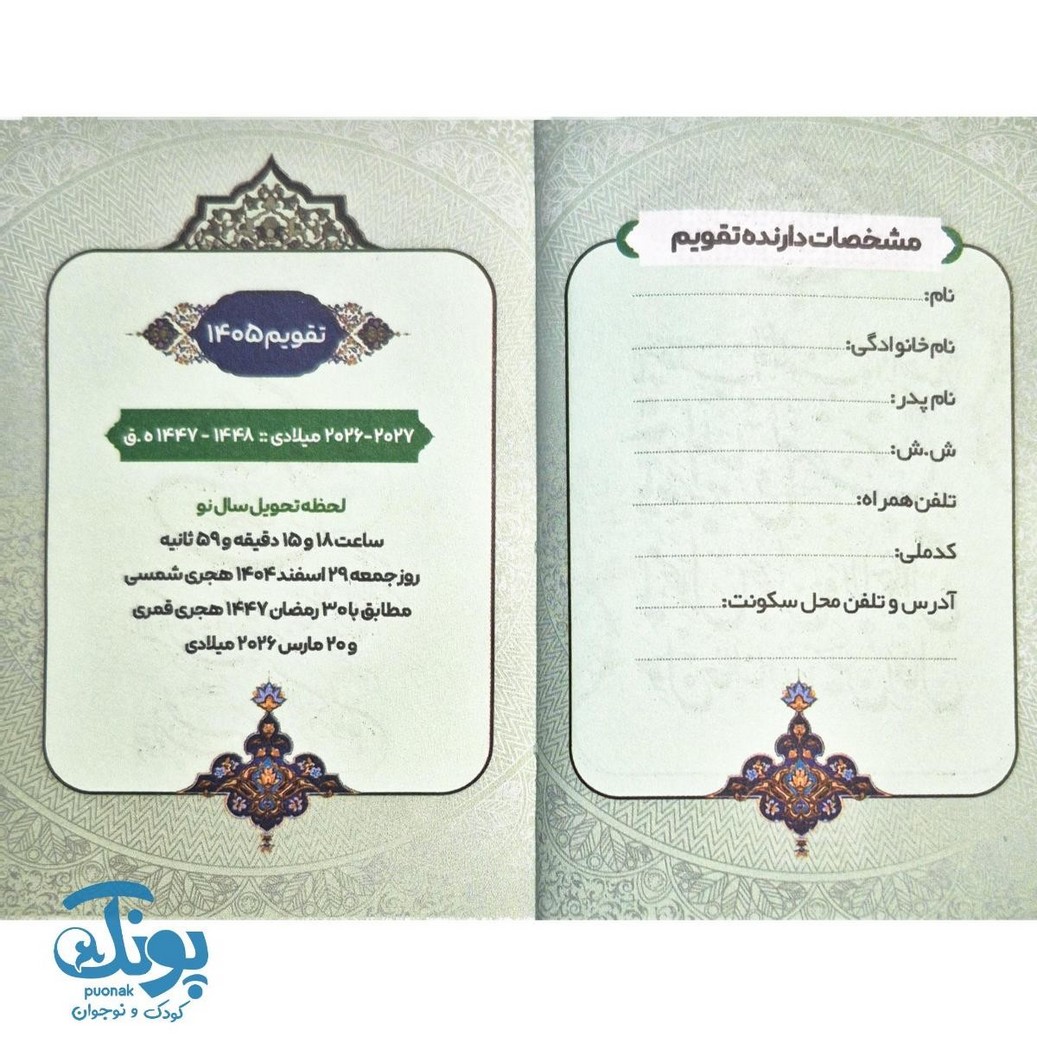 مشخصات دارنده تقویم
نام:
نام خانوادگی:
نام پدر:
ش.ش:
تلفن همراه:
کدملی:
آدرس و تلفن محل سکونت:
تقویم ۱۴۰۵
۲۰۲۶-۲۰۲۷ میلادی :: ۱۴۴۸ - ۱۴۴۷ ه.ق
لحظه تحویل سال نو
ساعت ۱۸ و ۱۵ دقیقه و ۵۹ ثانیه
روز جمعه ۲۹ اسفند ۱۴۰۴ هجری شمسی
مطابق با ۳۰ رمضان ۱۴۴۷ هجری قمری
و ۲۰ مارس ۲۰۲۶ میلادی
پونک
puonak
کودک و نوجوان